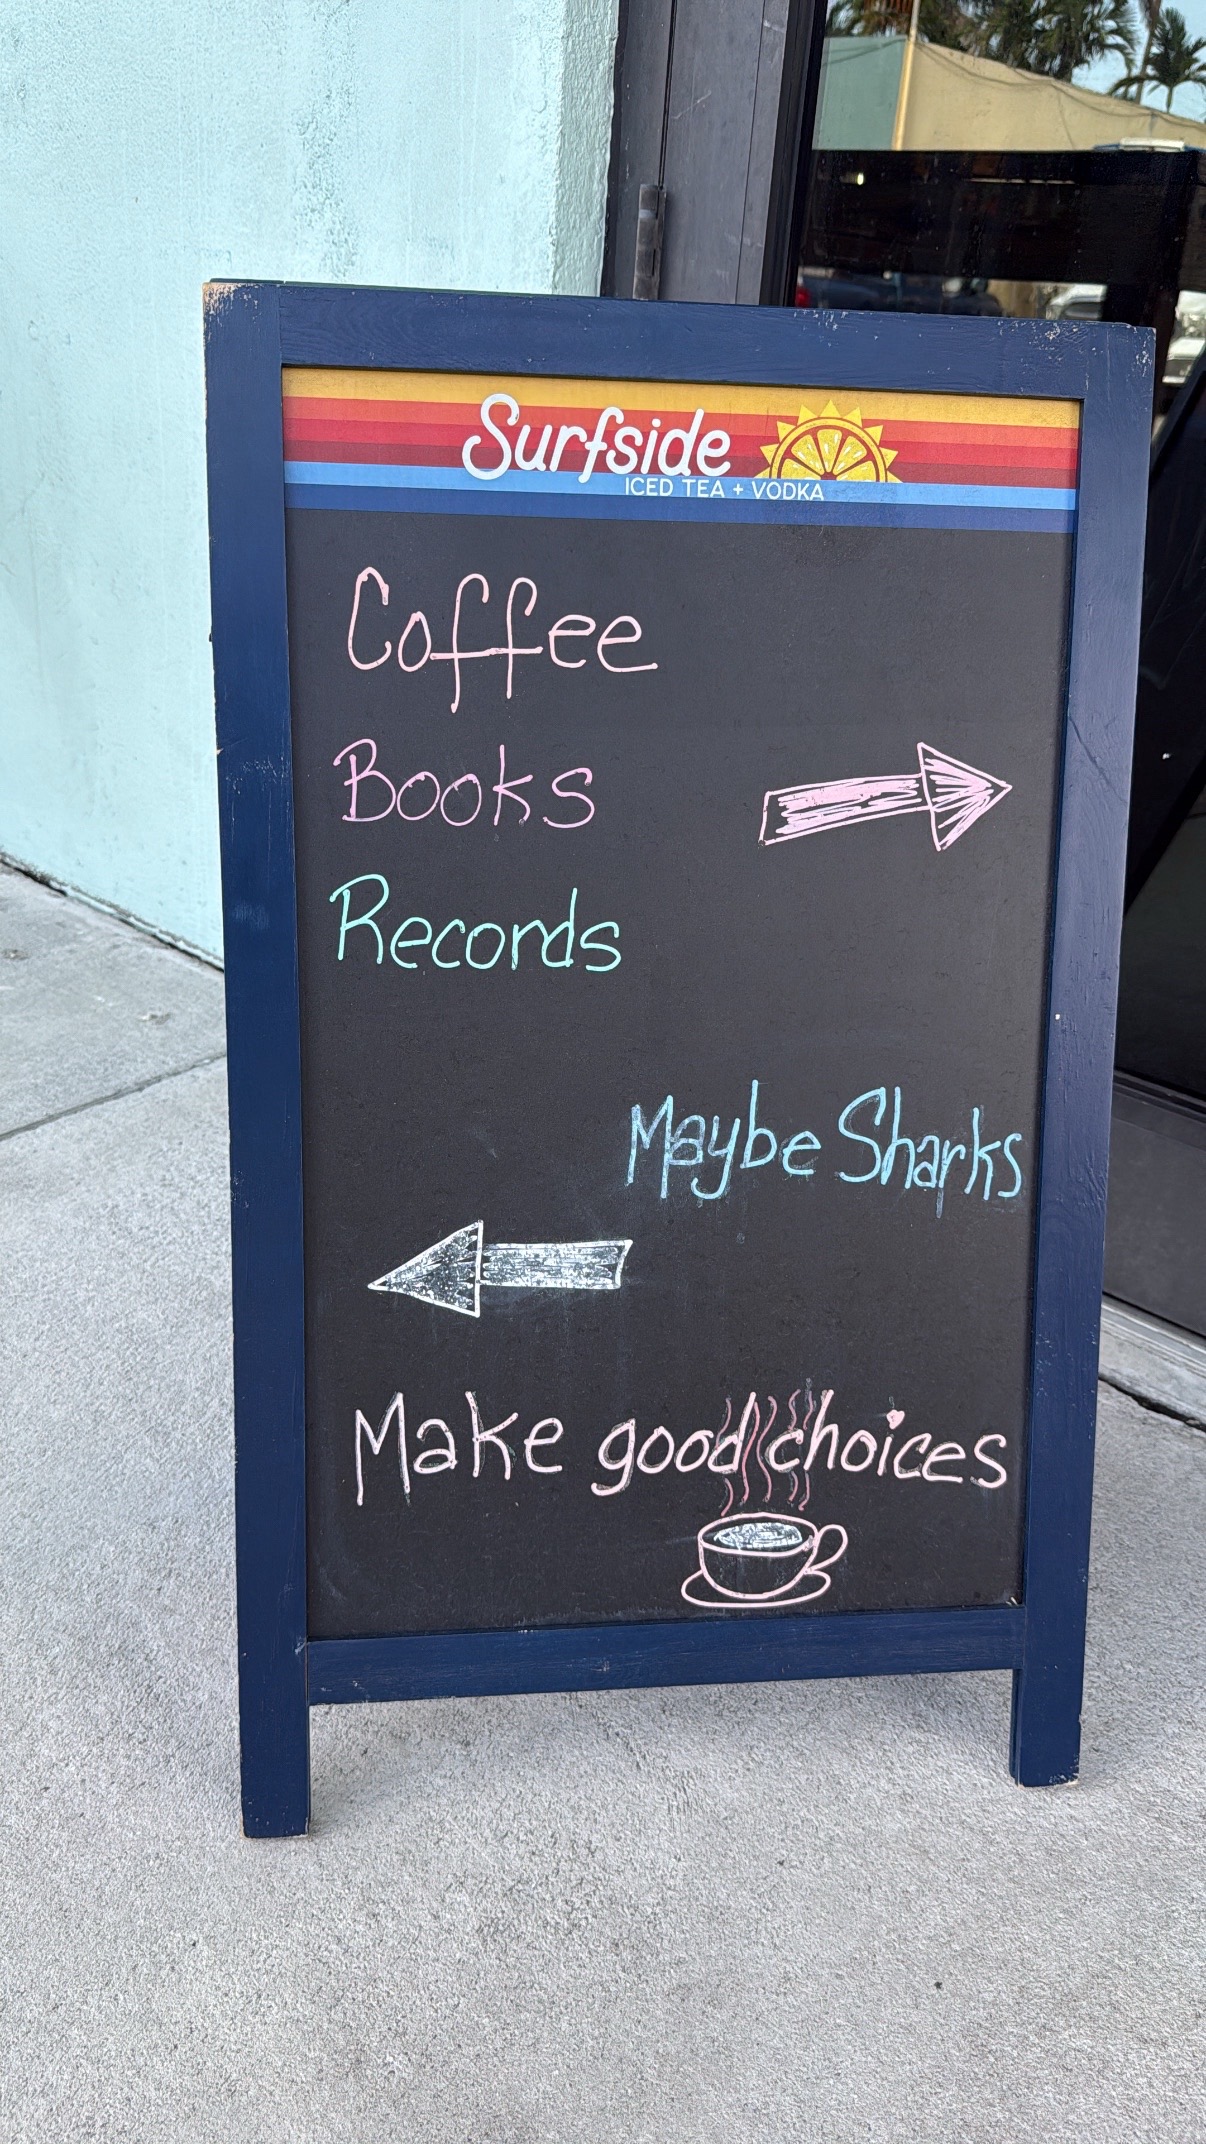 Surfside
ICED TEA + VODKA
Coffee
Books
Records
Maybe Sharks
Make good choices